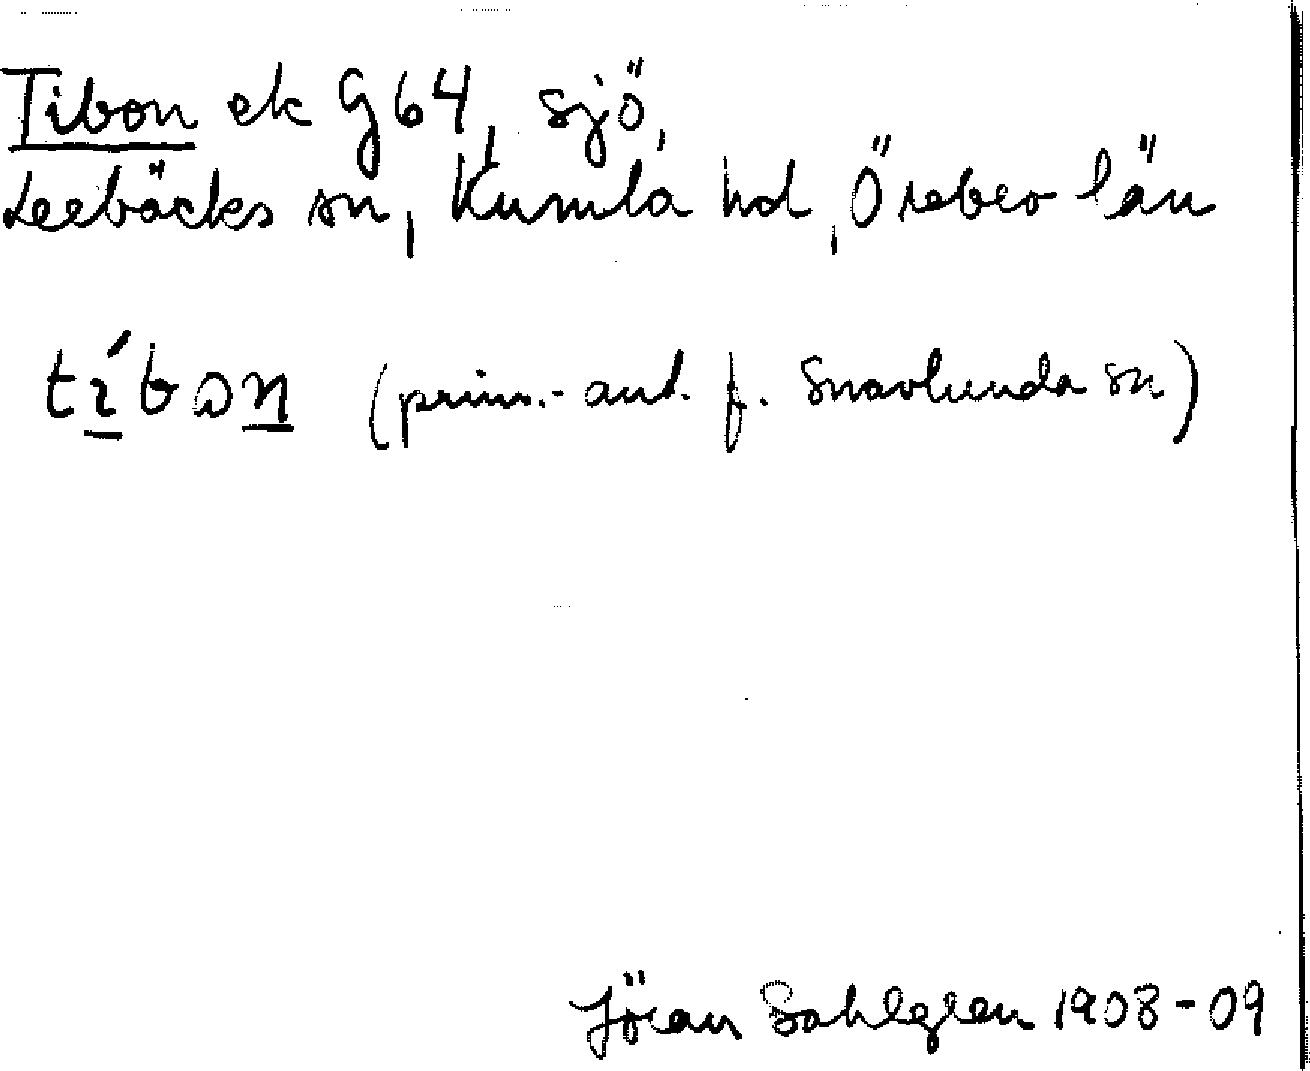 Tibon ek G64, sjö,
Lerbäcks sn, Kumla hd, Örebro län
tíbɔn (prim.-ant. f. Snavlunda sn)
Jöran Sahlgren 1908-09